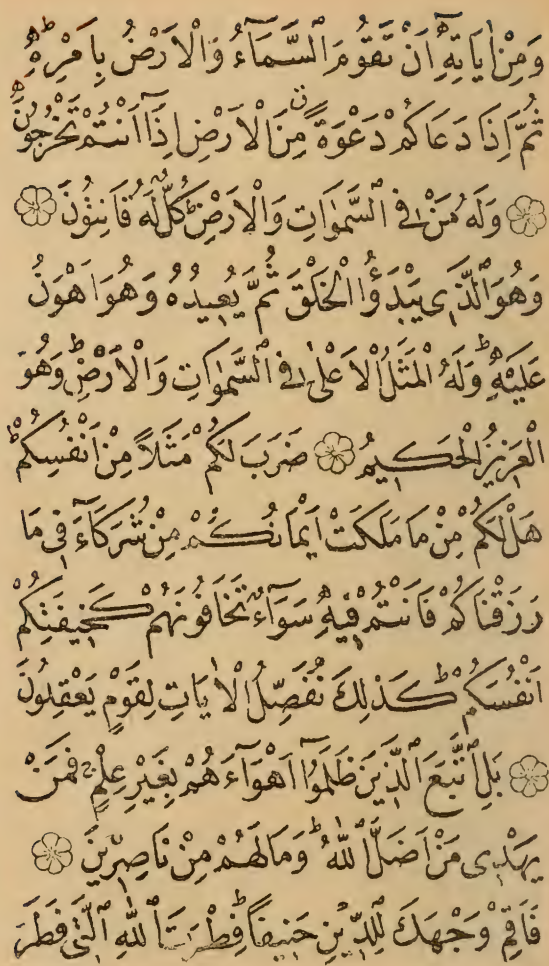 وَمِنْ اٰيَاتِهِ اَنْ تَقُومَ السَّمَآءُ وَالْاَرْضُ بِاَمْرِهِ ط
ثُمَّ اِذَا دَعَاكُمْ دَعْوَةً ق مِنَ الْاَرْضِ اِذَآ اَنْتُمْ تَخْرُجُونَ
وَلَهُ مَنْ فِي السَّمٰوَاتِ وَالْاَرْضِ ط كُلٌّ لَهُ قَانِتُونَ
وَهُوَ الَّذِي يَبْدَؤُا الْخَلْقَ ثُمَّ يُعِيدُهُ وَهُوَ اَهْوَنُ
عَلَيْهِ ط وَلَهُ الْمَثَلُ الْاَعْلٰى فِي السَّمٰوَاتِ وَالْاَرْضِ ط وَهُوَ
الْعَزِيزُ الْحَكِيمُ ضَرَبَ لَكُمْ مَثَلًا مِنْ اَنْفُسِكُمْ ط
هَلْ لَكُمْ مِنْ مَا مَلَكَتْ اَيْمَانُكُمْ مِنْ شُرَكَآءَ فِي مَا
رَزَقْنَاكُمْ فَاَنْتُمْ فِيهِ سَوَآءٌ تَخَافُونَهُمْ كَخِيفَتِكُمْ
اَنْفُسَكُمْ ط كَذٰلِكَ نُفَصِّلُ الْاٰيَاتِ لِقَوْمٍ يَعْقِلُونَ
بَلِ اتَّبَعَ الَّذِينَ ظَلَمُوٓا اَهْوَآءَهُمْ بِغَيْرِ عِلْمٍ ج فَمَنْ
يَهْدِي مَنْ اَضَلَّ اللّٰهُ ط وَمَا لَهُمْ مِنْ نَاصِرِينَ
فَاَقِمْ وَجْهَكَ لِلدِّينِ حَنِيفًا ط فِطْرَتَ اللّٰهِ الَّتِي فَطَرَ